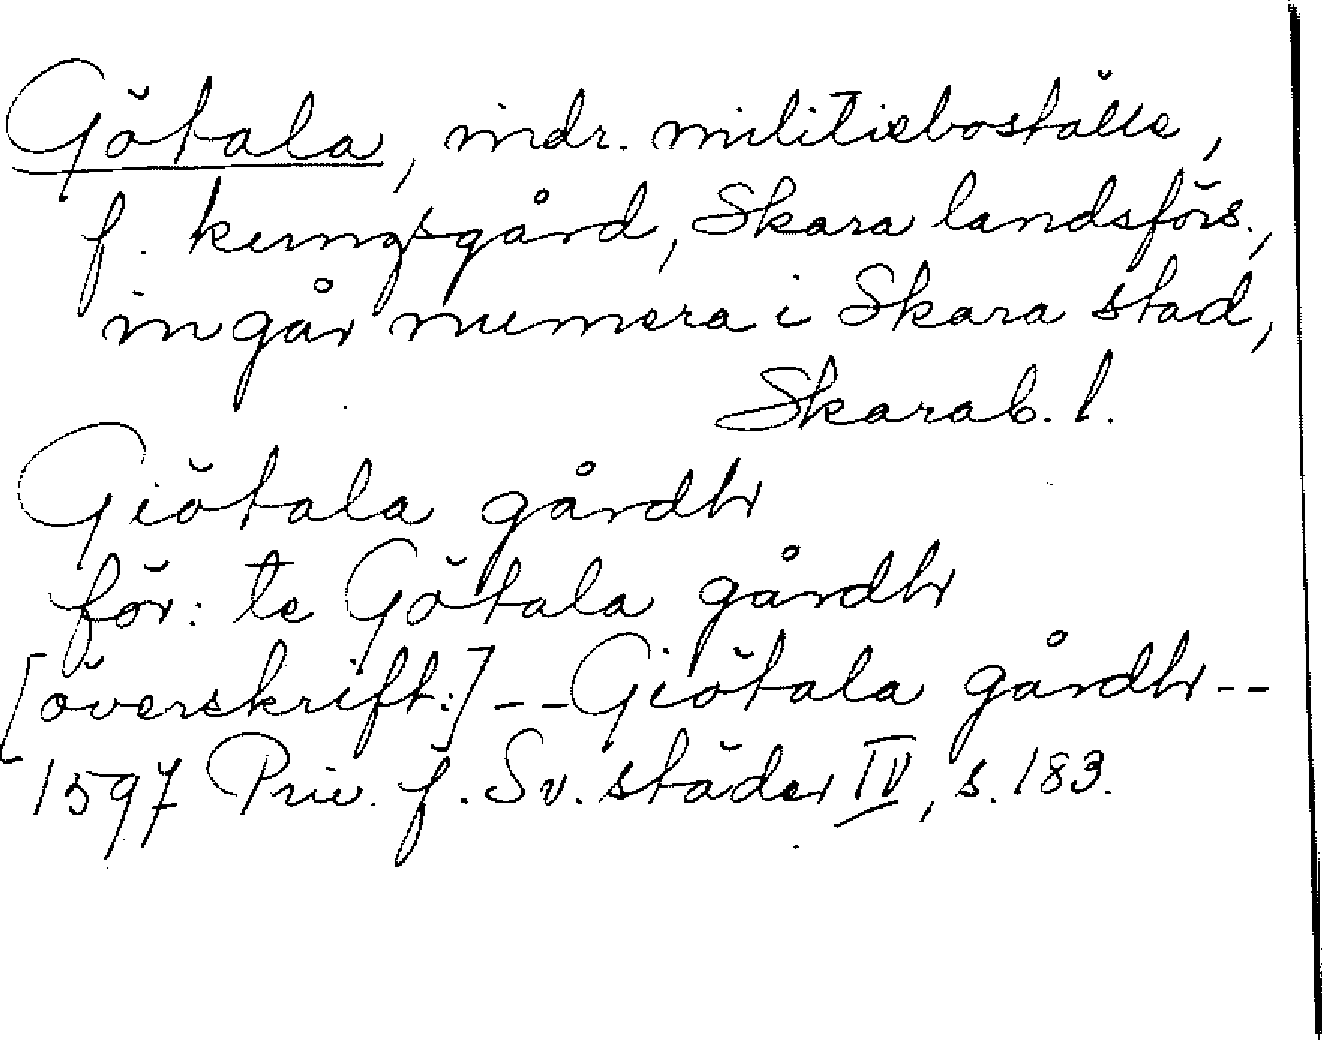 Götala, indr. militieboställe,
f. kungsgård, Skara landsförs.,
ingår numera i Skara stad,
Skarab. l.
Giötala gårdh
för: te Götala gårdh
[överskrift:] -- Giötala gårdh --
1597 Priv. f. Sv. städer IV, s. 183.